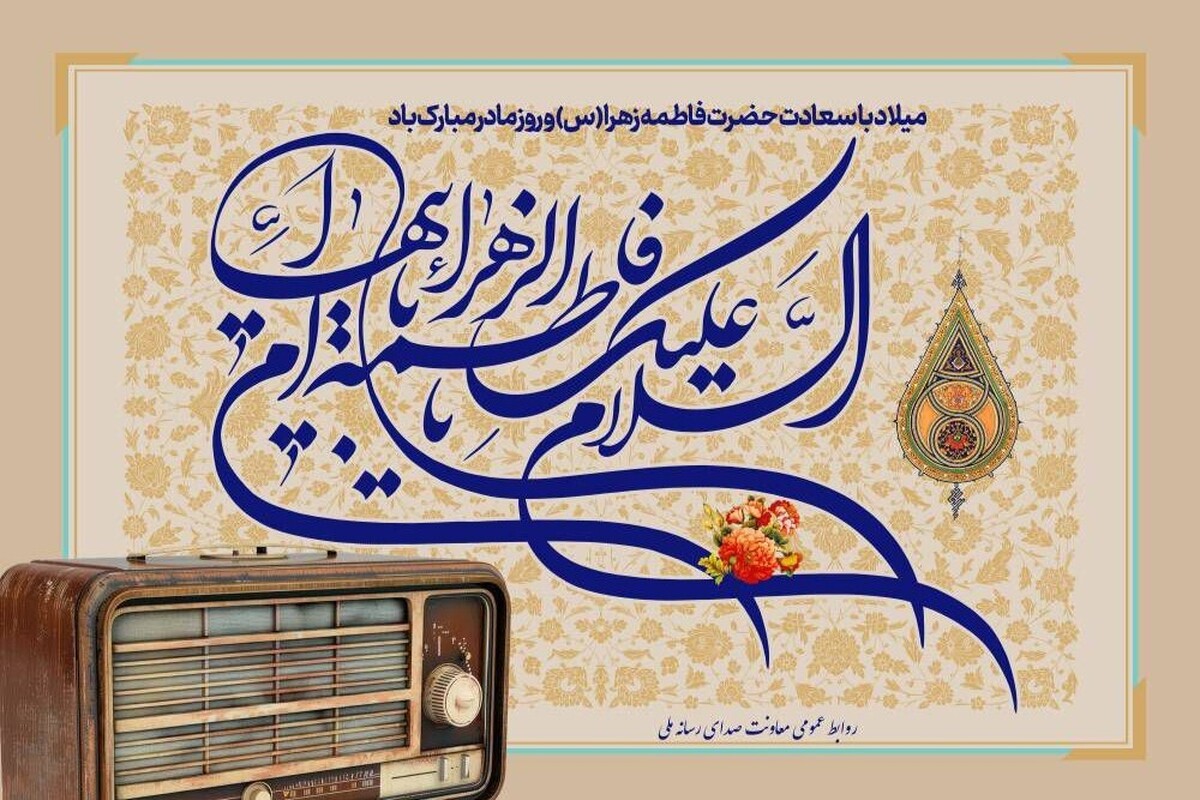 میلاد با سعادت حضرت فاطمه زهرا (س) و روز مادر مبارک باد
السَّلام علیک یا فاطمة الزهراء
روابط عمومی معاونت صدای رسانه ملی